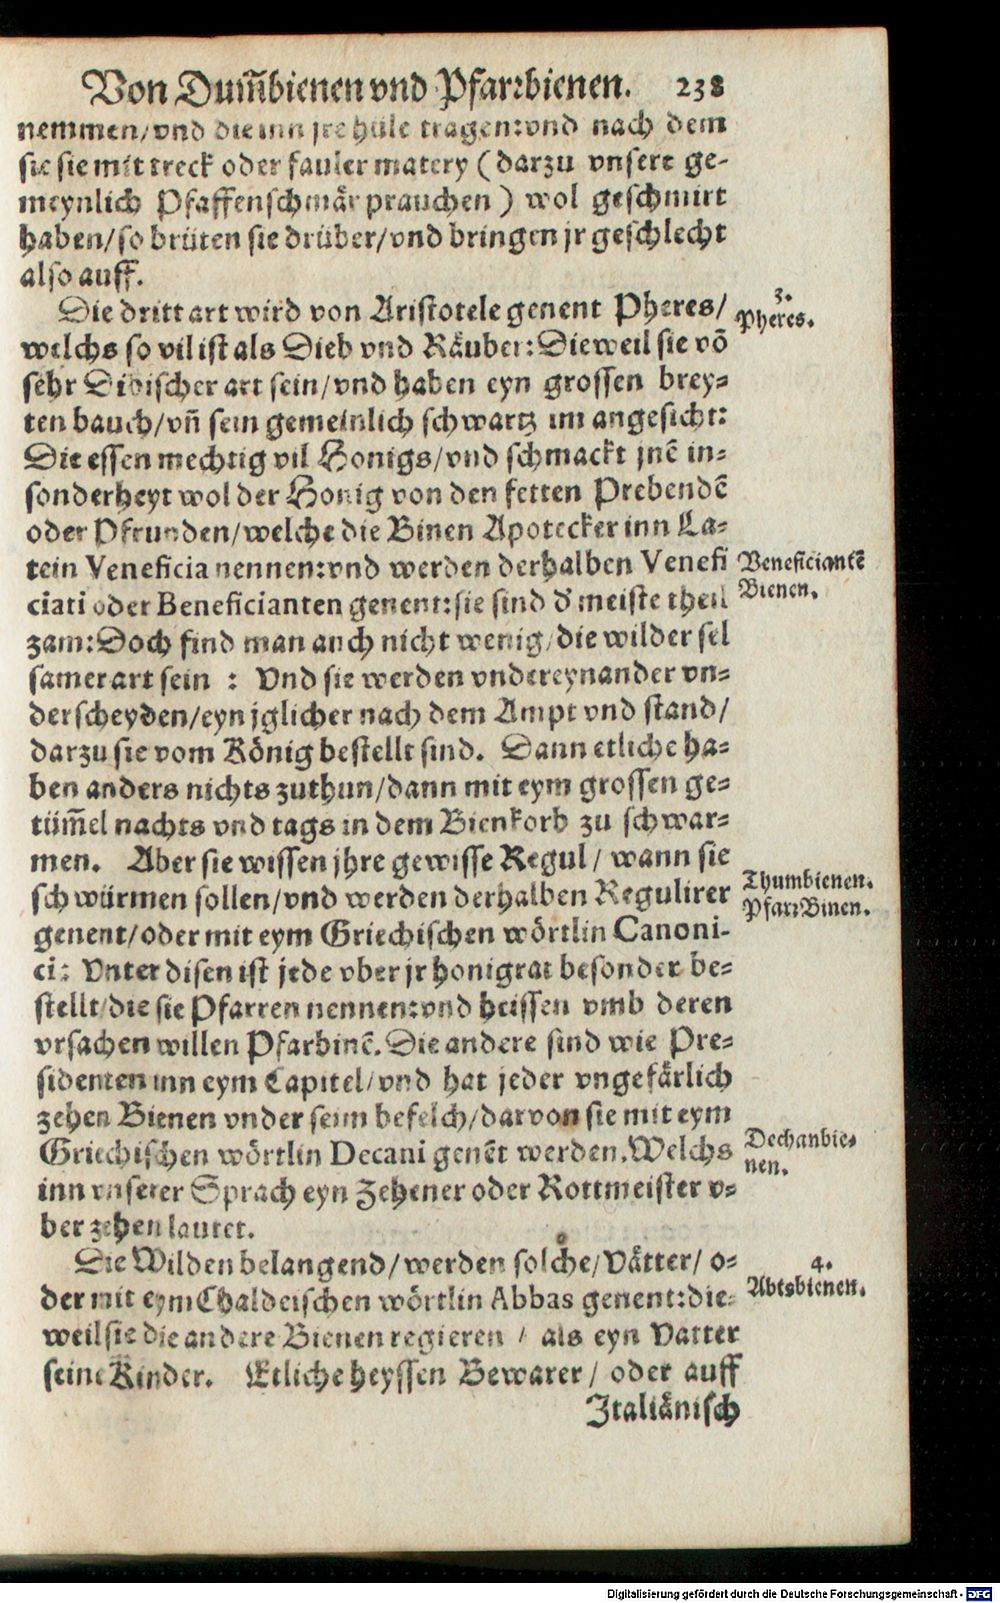 Von Dum̃bienen vnd Pfarrbienen. 238
nemmen/vnd die inn jre hüle tragen: vnd nach dem
sie sie mit treck oder fauler matery (darzu vnsere ge-
meynlich Pfaffenschmär prauchen) wol geschmirt
haben/so brüten sie drüber/vnd bringen jr geschlecht
also auff.
Die dritt art wird von Aristotele genent Pheres/
welchs so vil ist als Dieb vnd Räuber: Dieweil sie võ
sehr Dibischer art sein/vnd haben eyn grossen brey-
ten bauch/vñ sein gemeinlich schwartz im angesicht:
Die essen mechtig vil Honigs/vnd schmackt jnẽ in-
sonderheyt wol der Honig von den fetten Prebendẽ
oder Pfrunden/welche die Binen Apotecker inn La-
tein Veneficia nennen: vnd werden derhalben Venefi
ciati oder Beneficianten genent: sie sind d' meiste theil
zam: Doch find man auch nicht wenig/die wilder sel
samer art sein : Vnd sie werden vndereynander vn-
derscheyden/eyn jglicher nach dem Ampt vnd stand/
darzu sie vom König bestellt sind. Dann etliche ha-
ben anders nichts zuthun/dann mit eym grossen ge-
tüm̃el nachts vnd tags in dem Bienkorb zu schwar-
men. Aber sie wissen jhre gewisse Regul/ wann sie
schwürmen sollen/vnd werden derhalben Regulirer
genent/oder mit eym Griechischen wörtlin Canoni-
ci: Vnter disen ist jede vber jr honigrat besonder be-
stellt/die sie Pfarren nennen: vnd heissen vmb deren
vrsachen willen Pfarbinẽ. Die andere sind wie Pre-
sidenten inn eym Capitel/vnd hat jeder vngefärlich
zehen Bienen vnder seim befelch/darvon sie mit eym
Griechischen wörtlin Decani genẽt werden. Welchs
inn vnserer Sprach eyn Zehener oder Rottmeister v-
ber zehen lautet.
Die Wilden belangend/werden solche/Vätter/ o-
der mit eym Chaldeischen wörtlin Abbas genent: die-
weil sie die andere Bienen regieren / als eyn Vatter
seine Kinder. Etliche heyssen Bewarer/ oder auff
Italiänisch
3.
Pheres.
Veneficiantẽ
Bienen.
Thumbienen.
PfarrBinen.
Dechanbie-
nen.
4.
Abtsbienen.
Digitalisierung gefördert durch die Deutsche Forschungsgemeinschaft - DFG